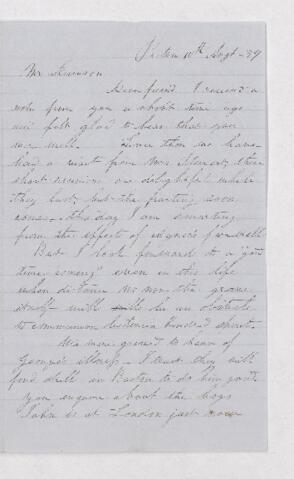 10th Augt -59
Mr
Dear friend I received a
note from you a short time ago
and felt glad to hear that you
are well. Since then we have
had a visit from Mrs. Stewart, these
short reunions are delightful while
they last, but the parting soon
comes - this day I am smarting
from the effect of a farewell
But I look forward to a "good
time coming" even in this life
when distance nor the grave
itself will be an obstacle
to communion between kindred spirits.
We were grieved to hear of
George's illness - I trust they will
find skill in Boston to do him good
You enquire about the boys
John is at London just now